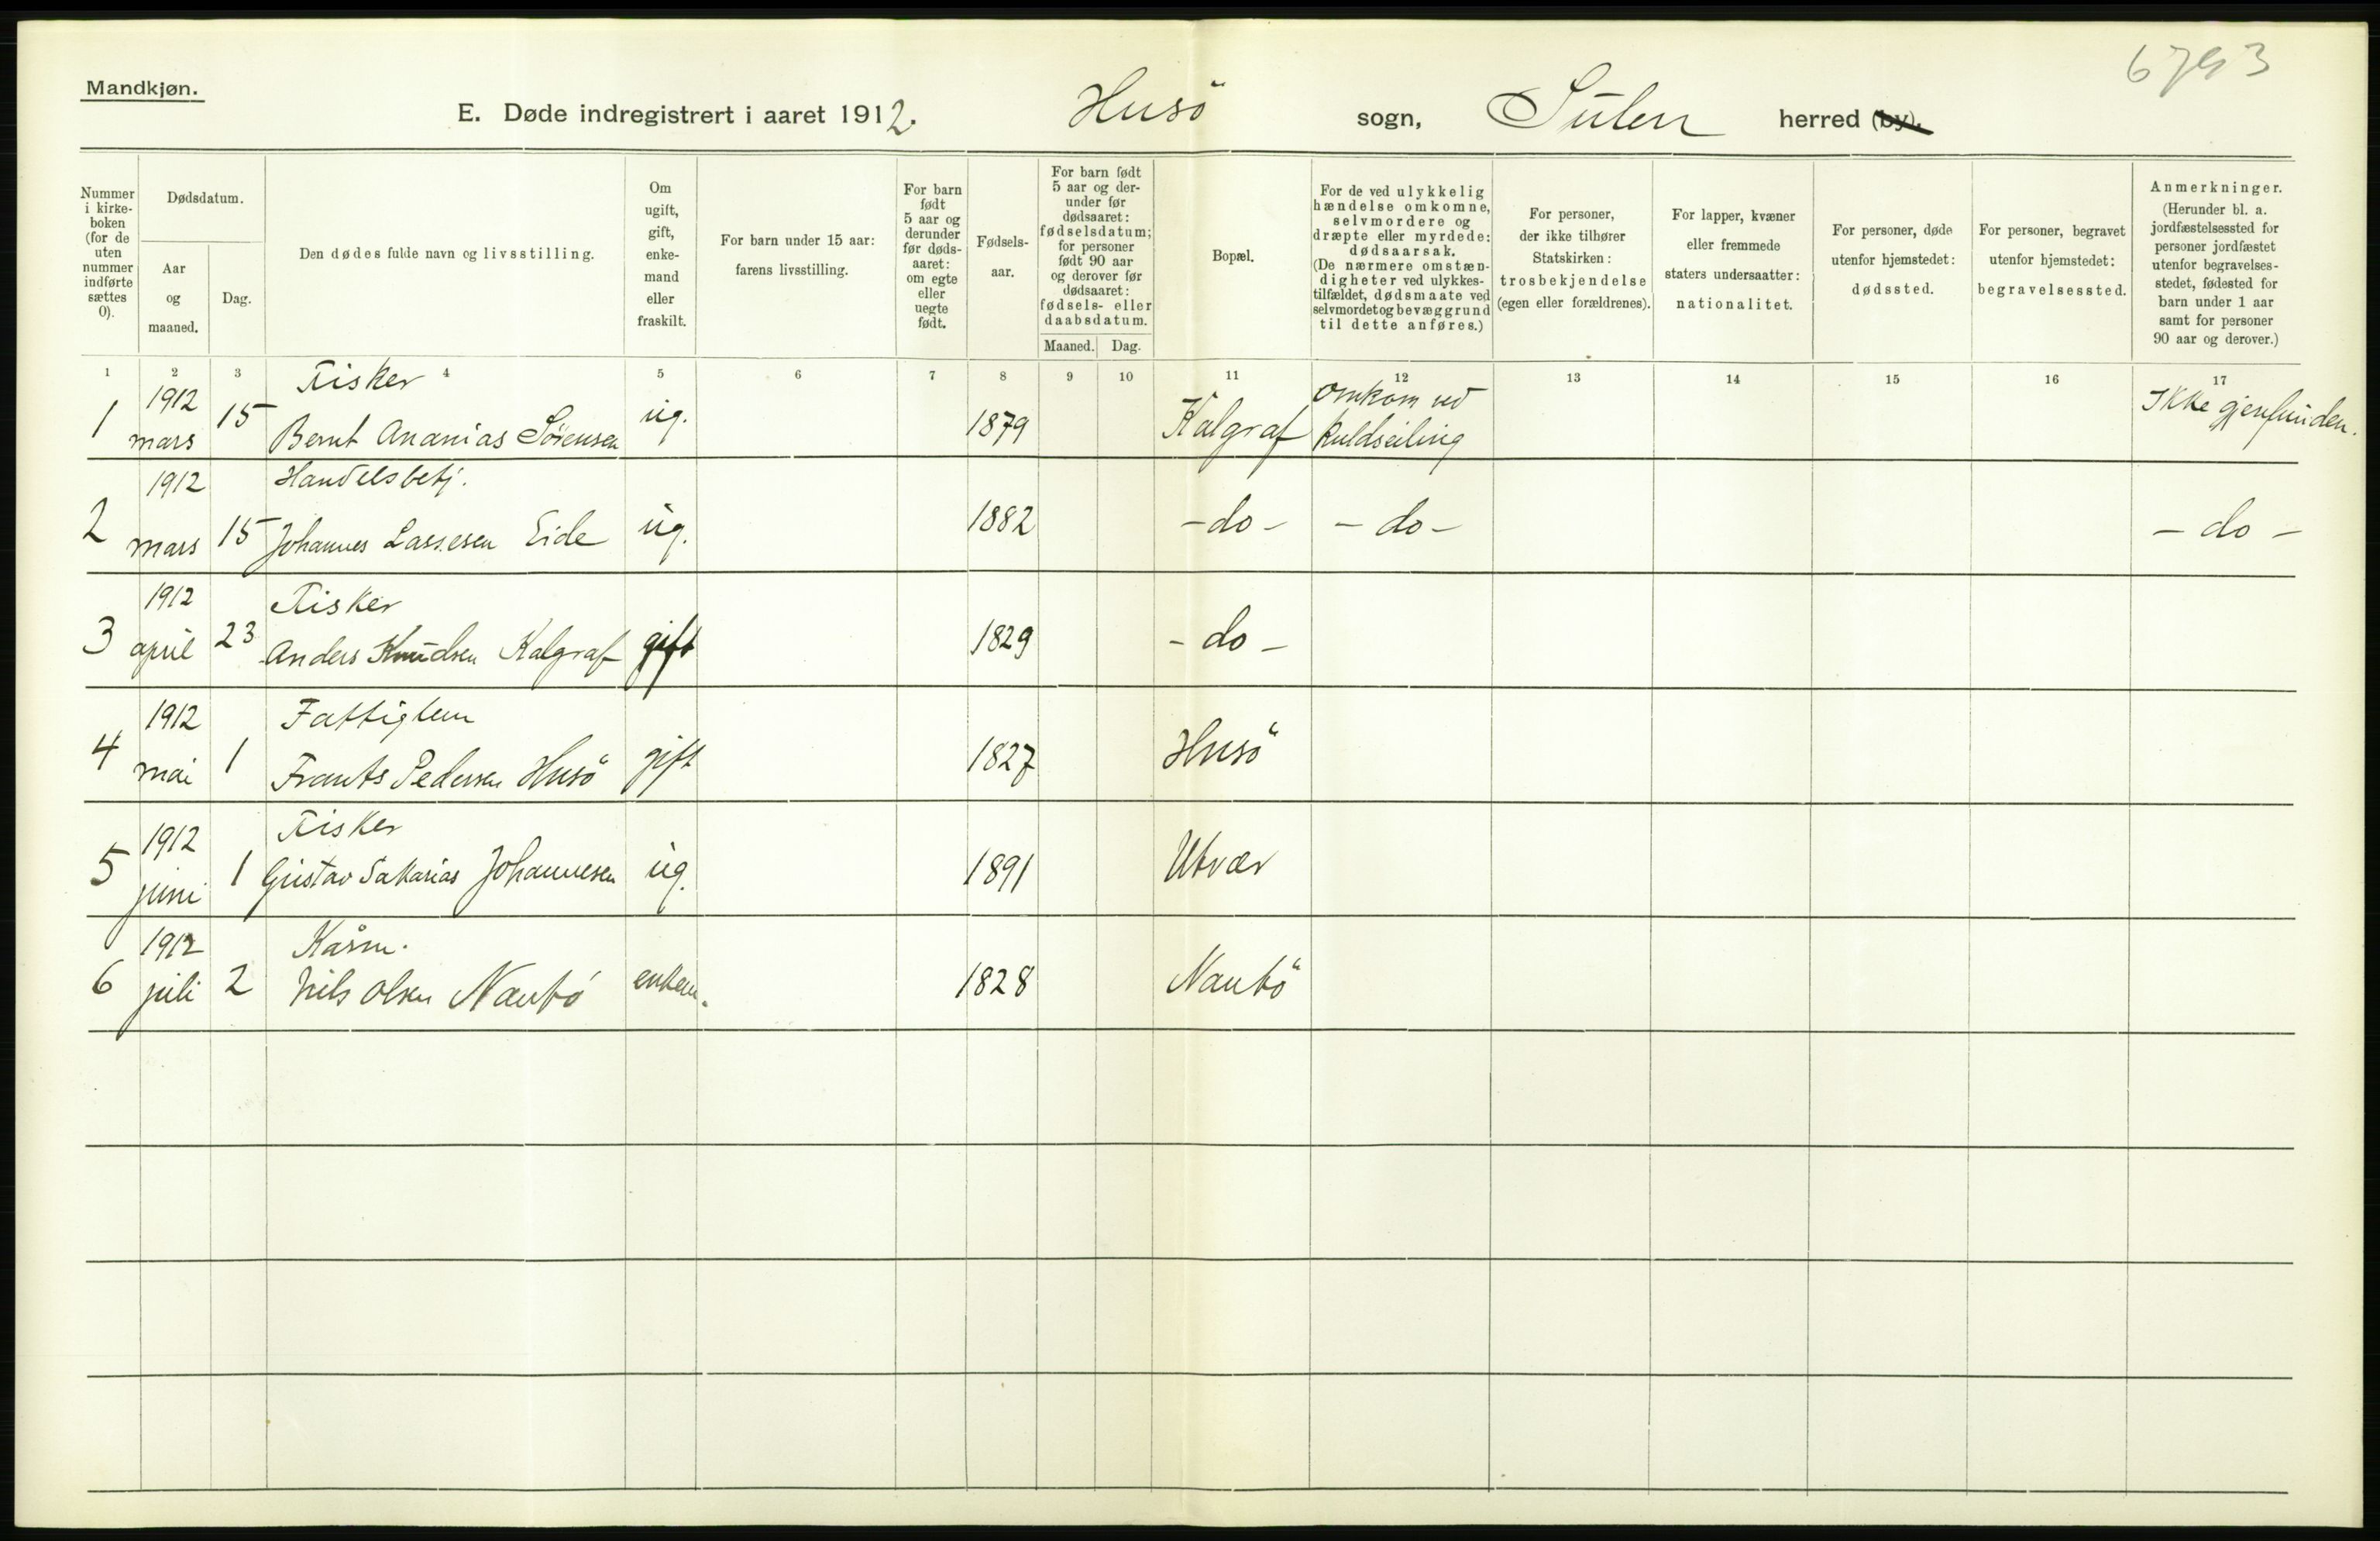 6793
Mandkjøn.
E. Døde indregistrert i aaret 1912. Husö sogn, Sulen herred (by).
Nummer i kirke-boken (for de uten nummer indførte sættes 0).
Dødsdatum.
Aar og maaned.
Dag.
Den dødes fulde navn og livsstilling.
Om ugift, gift, enke-mand eller fraskilt.
For barn under 15 aar: farens livsstilling.
For barn født 5 aar og derunder før døds-aaret: om egte eller uegte født.
Fødsels-aar.
For barn født 5 aar og der-under før dødsaaret: fødselsdatum; for personer født 90 aar og derover før dødsaaret: fødsels- eller daabsdatum.
Maaned. Dag.
Bopæl.
For de ved ulykkelig hændelse omkomne, selvmordere og dræpte eller myrdede: dødsaarsak. (De nærmere omstæn-digheter ved ulykkes-tilfældet, dødsmaate ved selvmordet og bevæggrund til dette anføres.)
For personer, der ikke tilhører Statskirken: trosbekjendelse (egen eller forældrenes).
For lapper, kvæner eller fremmede staters undersaatter: nationalitet.
For personer, døde utenfor hjemstedet: dødssted.
For personer, begravet utenfor hjemstedet: begravelsessted.
Anmerkninger. (Herunder bl. a. jordfæstelsessted for personer jordfæstet utenfor begravelses-stedet, fødested for barn under 1 aar samt for personer 90 aar og derover.)
1 2 3 4 5 6 7 8 9 10 11 12 13 14 15 16 17
1912 Fisker omkom ved Ikke gjenfunden.
1 mars 15 Bernt Ananias Sörensen ug. 1879 Kalgraf kuldseiling
1912 Handelsbetj.
2 mars 15 Johannes Lassesen Eide ug. 1882 - do - - do - - do -
1912 Fisker
3 april 23 Anders Knudsen Kalgraf gift 1829 - do -
1912 Fattiglem
4 mai 1 Frants Pedersen Husö gift 1827 Husö
1912 Fisker
5 juni 1 Gustav Sakarias Johannesen ug. 1891 Utvær
1912 Kårm.
6 juli 2 Nils Olsen Nautö enkem. 1828 Nautö